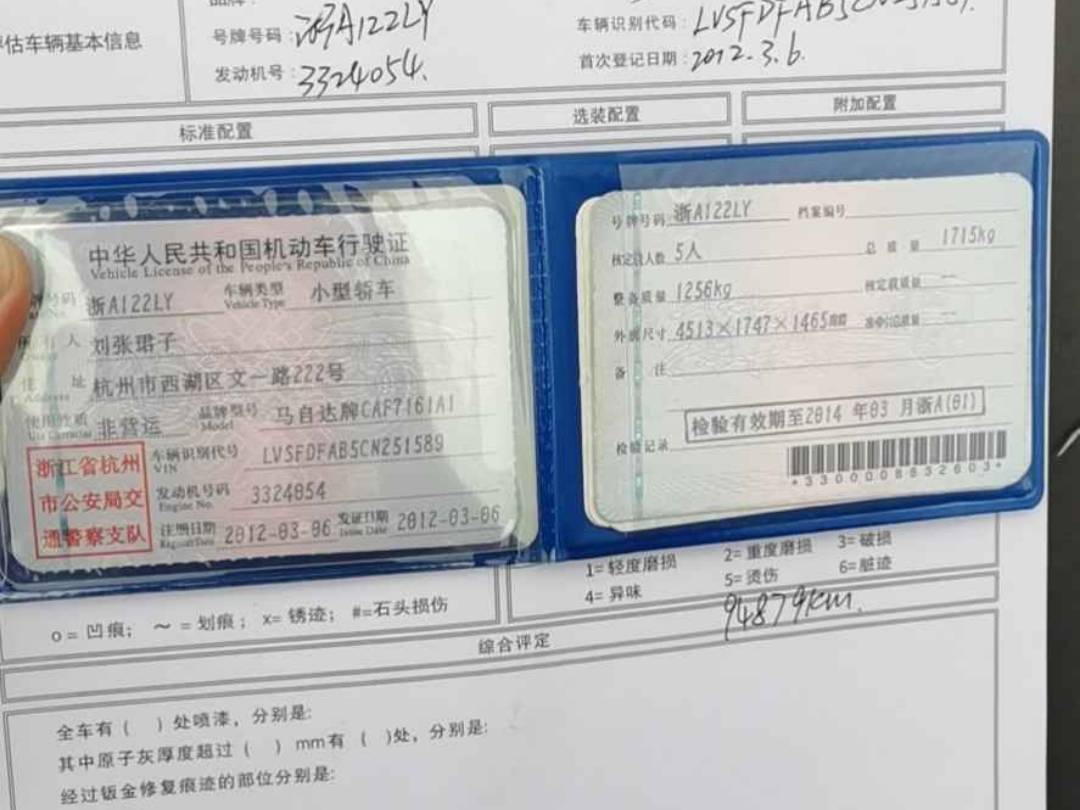 号牌号码：浙A122LY
车辆识别代码：LVSFDFAB5CN251589.
评估车辆基本信息
发动机号：3324054.
首次登记日期：2012.3.6.
标准配置
选装配置
附加配置
中华人民共和国机动车行驶证
Vehicle License of the People's Republic of China
号码 浙A122LY 车辆类型 Vehicle Type 小型轿车
所有人 刘张珺子
住址 Address 杭州市西湖区文一路222号
使用性质 Use Character 非营运 品牌型号 Model 马自达牌CAF7161A1
浙江省杭州
市公安局交
通警察支队
车辆识别代号 VIN LVSFDFAB5CN251589
发动机号码 Engine No. 3324054
注册日期 Register Date 2012-03-06 发证日期 Issue Date 2012-03-06
号牌号码 浙A122LY 档案编号
核定载人数 5人 总质量 1715kg
整备质量 1256kg 核定载质量 --
外廓尺寸 4513×1747×1465mm 准牵引总质量 --
备注
检验有效期至2014年03月浙A(01)
检验记录
*3300008832603*
1=轻度磨损 2=重度磨损 3=破损
4=异味 5=烫伤 6=脏迹
o=凹痕； ～=划痕； x=锈迹； #=石头损伤
94879km.
综合评定
全车有（ ）处喷漆，分别是:
其中原子灰厚度超过（ ）mm有（ ）处，分别是:
经过钣金修复痕迹的部位分别是: